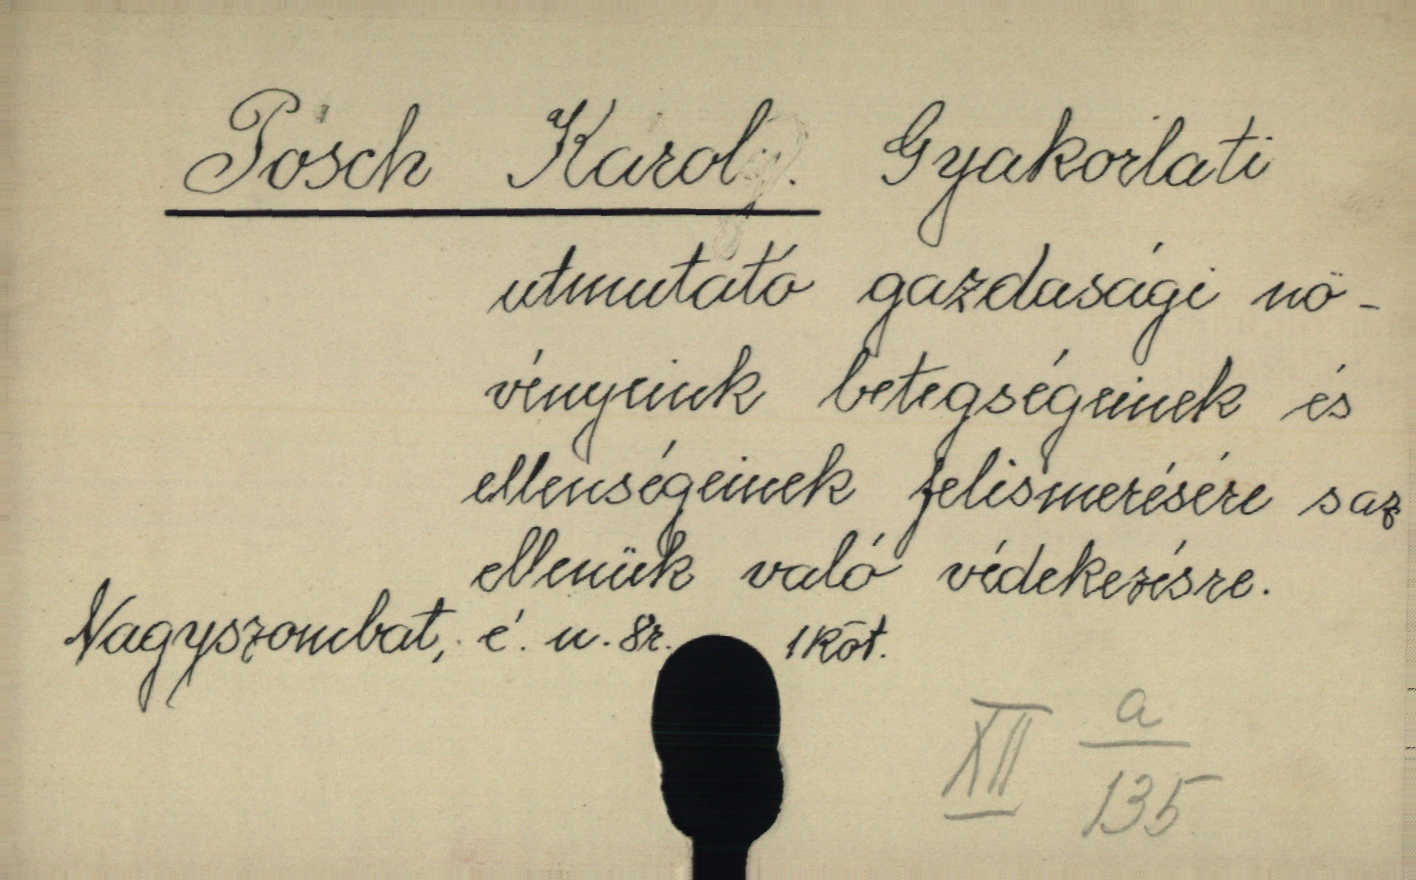 Pósch Károly. Gyakorlati
utmutató gazdasági nö-
vényeink betegségeinek és
ellenségeinek felismerésére s az
ellenük való védekezésre.
Nagyszombat, é. n. 8r. 1 köt.
XII a
135